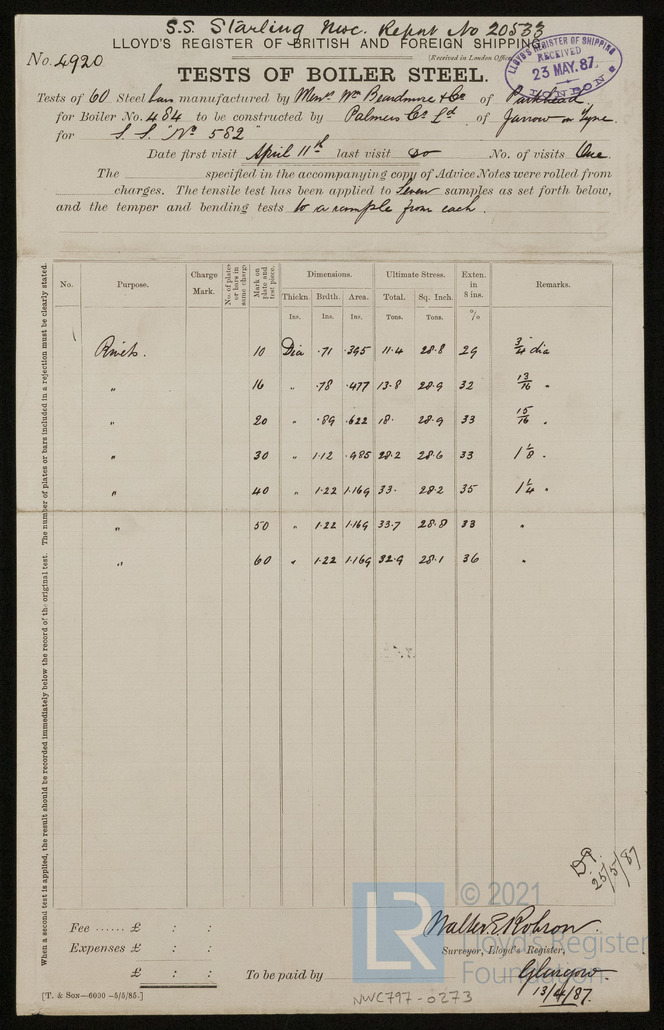 S.S. Starling Nwc. Report No 20533
LLOYD'S REGISTER OF BRITISH AND FOREIGN SHIPPING.
No. 4920
[Received in London Office
LLOYD'S REGISTER OF SHIPPING
RECEIVED
23 MAY. 87
LONDON
TESTS OF BOILER STEEL.
Tests of 60 Steel bars manufactured by Messrs Wm Beardmore & Co of Parkhead
for Boiler No. 484 to be constructed by Palmers Co Ld of Jarrow on Tyne
for S.S. No 582
Date first visit April 11th last visit Do No. of visits One.
The specified in the accompanying copy of Advice Notes were rolled from
charges. The tensile test has been applied to Seven samples as set forth below,
and the temper and bending tests to a sample from each.
When a second test is applied, the result should be recorded immediately below the record of the original test. The number of plates or bars included in a rejection must be clearly stated.
No. Purpose. Charge Mark. No. of plates or bars in same charge Mark on plate and test piece. Dimensions. Ultimate Stress. Exten. in 8 ins. Remarks.
Thickn. Brdth. Area. Total. Sq. Inch.
Ins. Ins. Ins. Tons. Tons. %
Rivets. 10 Dia .71 .395 11.4 28.8 29 3/4 dia
" 16 " .78 .477 13.8 28.9 32 13/16 "
" 20 " .89 .622 18. 28.9 33 15/16 "
" 30 " 1.12 .985 28.2 28.6 33 1 1/8 "
" 40 " 1.22 1.169 33. 28.2 35 1 1/4 "
" 50 " 1.22 1.169 33.7 28.8 33 "
" 60 " 1.22 1.169 32.9 28.1 36 "
25/5/87
Fee ...... £ : :
Expenses £ : :
£ : :
To be paid by
Walter E Robson.
Surveyor, Lloyd's Register,
Glasgow.
13/4/87.
[T. & Son—6000—5/5/85.]
NWC797-0273
LR
© 2021
Lloyd's Register
Foundation